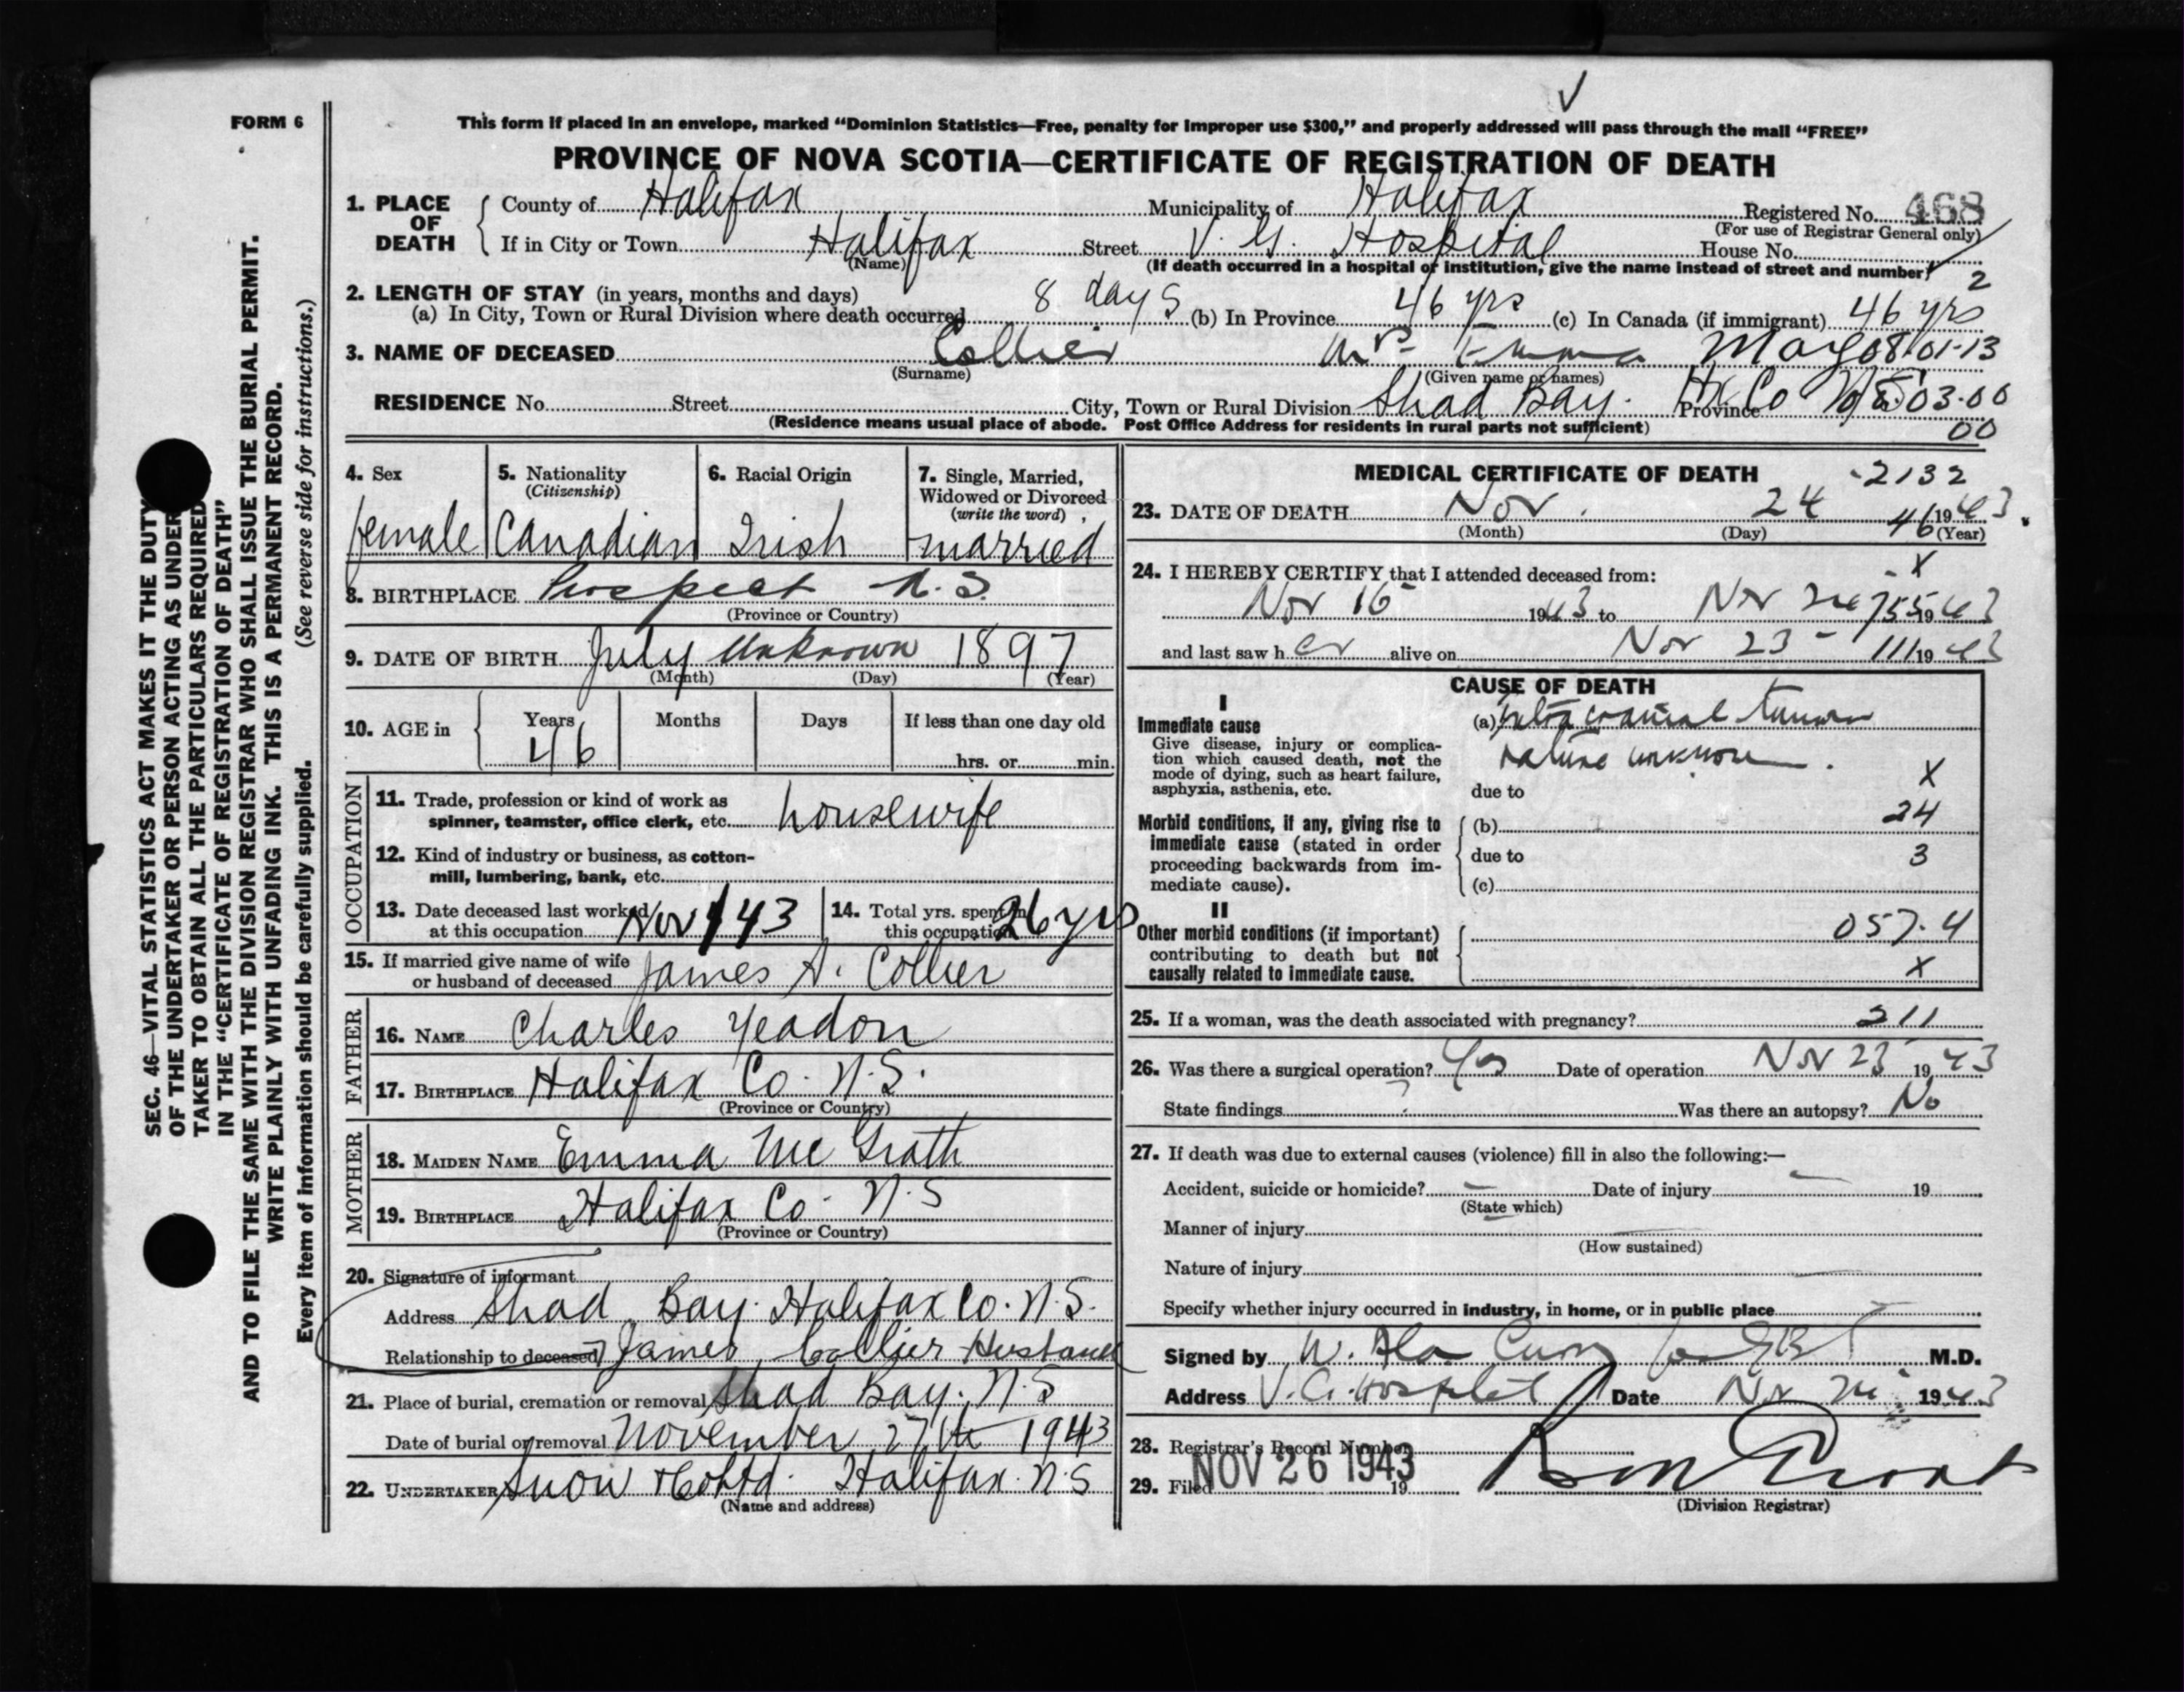 FORM 6
This form if placed in an envelope, marked "Dominion Statistics—Free, penalty for improper use $300," and properly addressed will pass through the mail "FREE"
PROVINCE OF NOVA SCOTIA—CERTIFICATE OF REGISTRATION OF DEATH
1. PLACE OF DEATH County of Halifax Municipality of Halifax Registered No. 468
(For use of Registrar General only)
If in City or Town Halifax Street V. G. Hospital House No.
(Name) (If death occurred in a hospital or institution, give the name instead of street and number)
2
2. LENGTH OF STAY (in years, months and days)
(a) In City, Town or Rural Division where death occurred 8 days (b) In Province 46 yrs (c) In Canada (if immigrant) 46 yrs
3. NAME OF DECEASED Collier Mrs Emma May 08-01-13
(Surname) (Given name or names)
RESIDENCE No. Street City, Town or Rural Division Shad Bay. Hx Co Province N.S. 03-00
(Residence means usual place of abode. Post Office Address for residents in rural parts not sufficient) 00
4. Sex female
5. Nationality (Citizenship) Canadian
6. Racial Origin Irish
7. Single, Married, Widowed or Divorced (write the word) married
8. BIRTHPLACE Prospect N.S.
(Province or Country)
9. DATE OF BIRTH July Unknown 1897
(Month) (Day) (Year)
10. AGE in Years 46 Months Days If less than one day old
hrs. or min.
OCCUPATION
11. Trade, profession or kind of work as
spinner, teamster, office clerk, etc. housewife
12. Kind of industry or business, as cotton-
mill, lumbering, bank, etc.
13. Date deceased last worked at this occupation Nov 1 43
14. Total yrs. spent in this occupation 26 yrs
15. If married give name of wife
or husband of deceased James A. Collier
FATHER
16. NAME Charles Yeadon
17. BIRTHPLACE Halifax Co. N.S.
(Province or Country)
MOTHER
18. MAIDEN NAME Emma McGrath
19. BIRTHPLACE Halifax Co. N.S
(Province or Country)
20. Signature of informant
Address Shad Bay. Halifax Co. N.S.
Relationship to deceased James Collier Husband
21. Place of burial, cremation or removal Shad Bay. N.S
Date of burial or removal November 27th 1943
22. UNDERTAKER Snow & Co Ltd. Halifax N.S
(Name and address)
MEDICAL CERTIFICATE OF DEATH -2132
23. DATE OF DEATH Nov. 24 1943.
(Month) (Day) 46 (Year)
x
24. I HEREBY CERTIFY that I attended deceased from:
Nov 16 1943 to Nov 24 755 1943
and last saw her alive on Nov 23 - 111 1943
CAUSE OF DEATH
I
Immediate cause
Give disease, injury or complica-
tion which caused death, not the
mode of dying, such as heart failure,
asphyxia, asthenia, etc.
(a) Intra cranial tumor
nature unknown.
x
due to
24
Morbid conditions, if any, giving rise to
immediate cause (stated in order
proceeding backwards from im-
mediate cause).
(b)
due to 3
(c)
II
Other morbid conditions (if important)
contributing to death but not
causally related to immediate cause.
057.4
x
25. If a woman, was the death associated with pregnancy? 211
26. Was there a surgical operation? Yes Date of operation Nov 23 1943
State findings ? Was there an autopsy? No
27. If death was due to external causes (violence) fill in also the following:—
Accident, suicide or homicide? — Date of injury — 19
(State which)
Manner of injury
(How sustained)
Nature of injury
Specify whether injury occurred in industry, in home, or in public place
Signed by W. M.D.
Address V.G. Hospital Date Nov 24 1943
28. Registrar's Record Number
29. Filed NOV 26 1943 19
(Division Registrar)
SEC. 46—VITAL STATISTICS ACT MAKES IT THE DUTY
OF THE UNDERTAKER OR PERSON ACTING AS UNDER
TAKER TO OBTAIN ALL THE PARTICULARS REQUIRED
IN THE "CERTIFICATE OF REGISTRATION OF DEATH"
AND TO FILE THE SAME WITH THE DIVISION REGISTRAR WHO SHALL ISSUE THE BURIAL PERMIT.
WRITE PLAINLY WITH UNFADING INK. THIS IS A PERMANENT RECORD.
Every item of information should be carefully supplied. (See reverse side for instructions.)